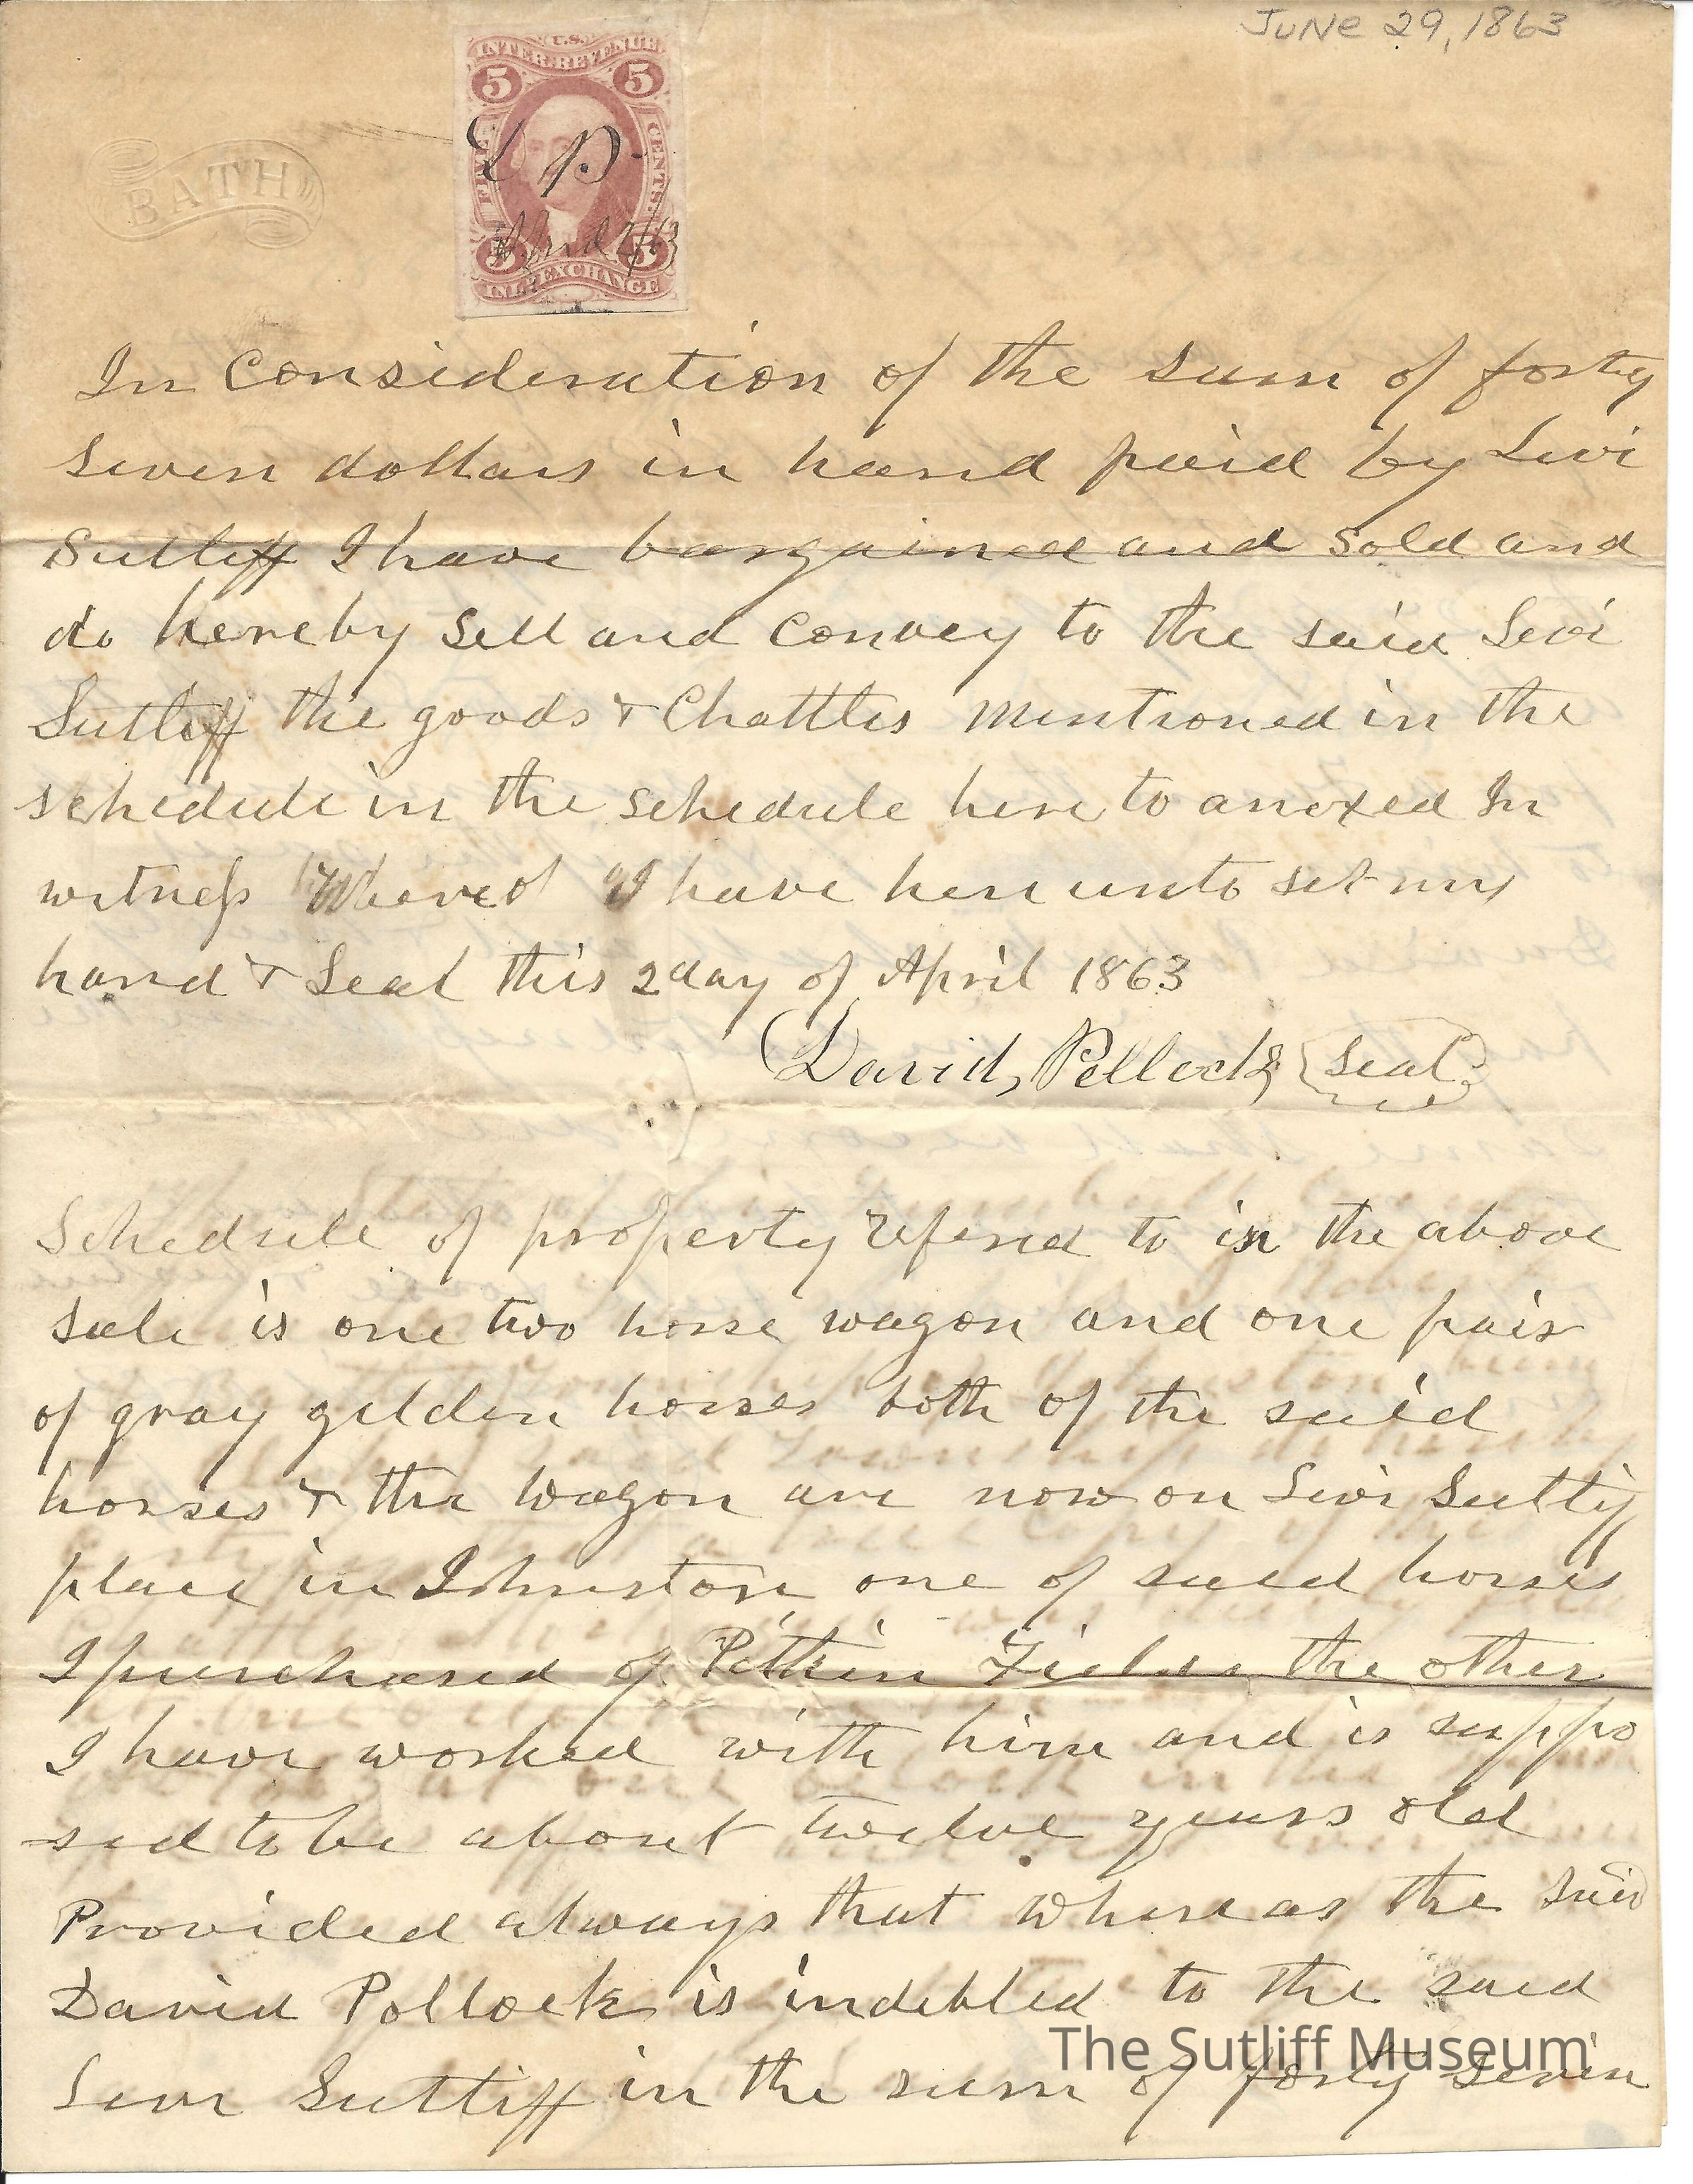 JUNE 29, 1863
U.S.
INTER. REVENUE
5 5
BATH
D P
FIVE CENTS.
April 2/63
5 5
INL. EXCHANGE
In Consideration of the sum of forty
Seven dollars in hand paid by Levi
Sutliff I have bargained and Sold and
do hereby Sell and Convey to the said Levi
Sutliff the goods & Chattles mentioned in the
schedule in the schedule here to anexed In
witness Whereof I have here unto set my
hand & Seal this 2 day of April 1863
David, Pollock Seal
Schedule of property refered to in the above
Sale is one two horse wagon and one pair
of gray gelden horses both of the said
horses & the wagon are now on Levi Sutliff
place in Johnston one of said horses
I purchased of the other
I have worked with him and is suppo
sed to be about twelve years old
Provided always that whereas the said
David Pollock is indebted to the said
Levi Sutliff in the sum of forty Seven
The Sutliff Museum